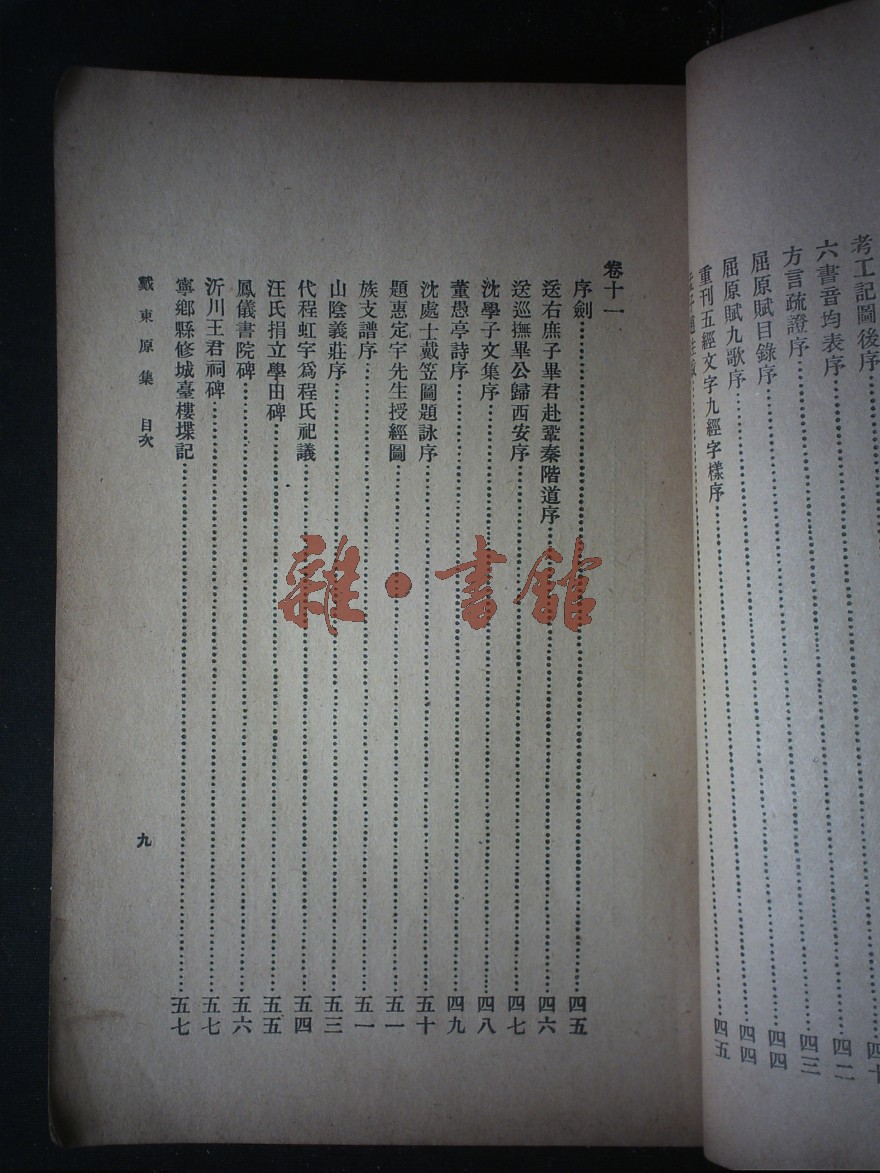 考工記圖後序
六書音均表序……四二
方言疏證序……四三
屈原賦目錄序……四四
屈原賦九歌序……四四
重刊五經文字九經字樣序……四五
卷十一
序劍……四五
送右庶子畢君赴鞏秦階道序……四六
送巡撫畢公歸西安序……四七
沈學子文集序……四八
董愚亭詩序……四九
沈處士戴笠圖題詠序……五十
題惠定宇先生授經圖……五一
族支譜序……五一
山陰義莊序……五三
代程虹宇爲程氏祀議……五四
汪氏捐立學田碑……五五
鳳儀書院碑……五六
沂川王君祠碑……五七
寧鄉縣修城臺樓堞記……五七
戴東原集 目次 九
雜·書館